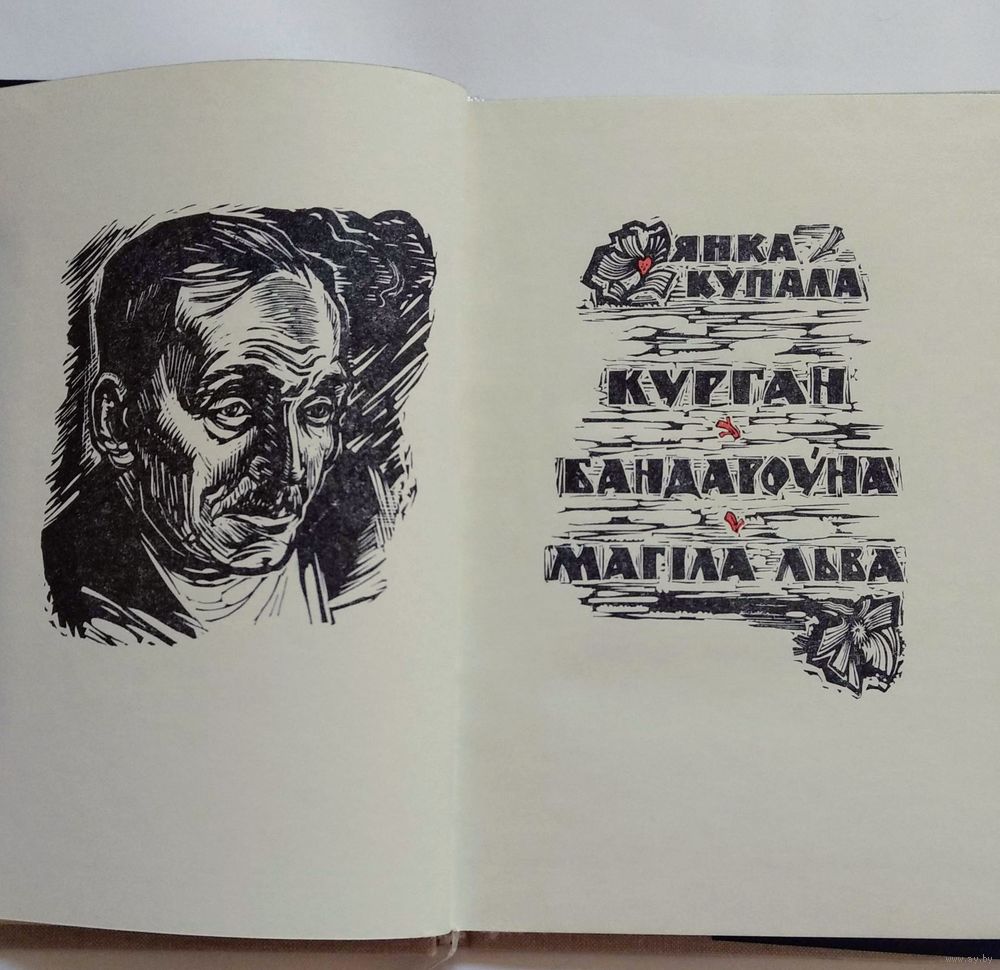 ЯНКА
КУПАЛА
КУРГАН
БАНДАРОЎНА
МАГІЛА ЛЬВА
www.ay.by